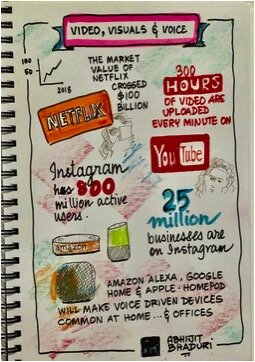 VIDEO, VISUALS & VOICE
100
50
2018
THE MARKET
VALUE OF
NETFLIX
CROSSED
$100
BILLION
NETFLIX
300
HOURS
OF VIDEO ARE
UPLOADED
EVERY MINUTE ON
YouTube
Instagram
has 800
million active
users.
25
million
businesses are
on Instagram
amazon
AMAZON ALEXA, GOOGLE
HOME & APPLE HOMEPOD
WILL MAKE VOICE DRIVEN DEVICES
COMMON AT HOME ... & OFFICES
ABHIJIT
BHADURI